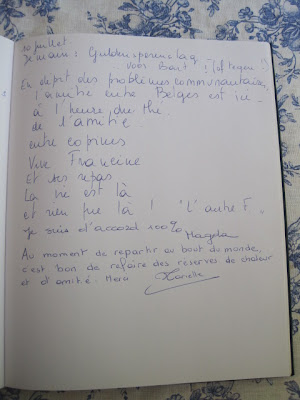 10 juillet.
Demain: Guldensporenslag
voor Bart! Tot tegen!
En dépit des problèmes communautaires,
l'amitié entre Belges est ici -
à l'heure du thé
de l'amitié
entre copines
Vive Francine
Et ses repas
La vie est là
et rien que là ! "L'autre F.
Je suis d'accord 100%
Magda
Au moment de repartir au bout du monde,
c'est bon de refaire des réserves de chaleur
et d'amitié. Merci